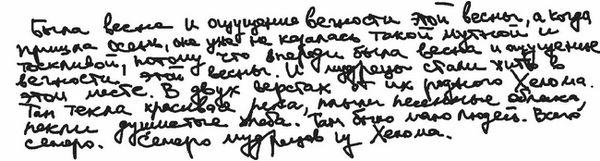 Была весна и ощущение вечности этой весны, а когда
пришла осень, она уже не казалась такой мутной и
тоскливой, потому что впереди была весна и ощущение
вечности этой весны. И мудрецы стали жить в
этом месте. В двух верстах от их родного Хелома.
Там текла красивая река, плыли песенные облака,
пекли душистые хлеба. Там было мало людей. Всего
семеро. Семеро мудрецов из Хелома.